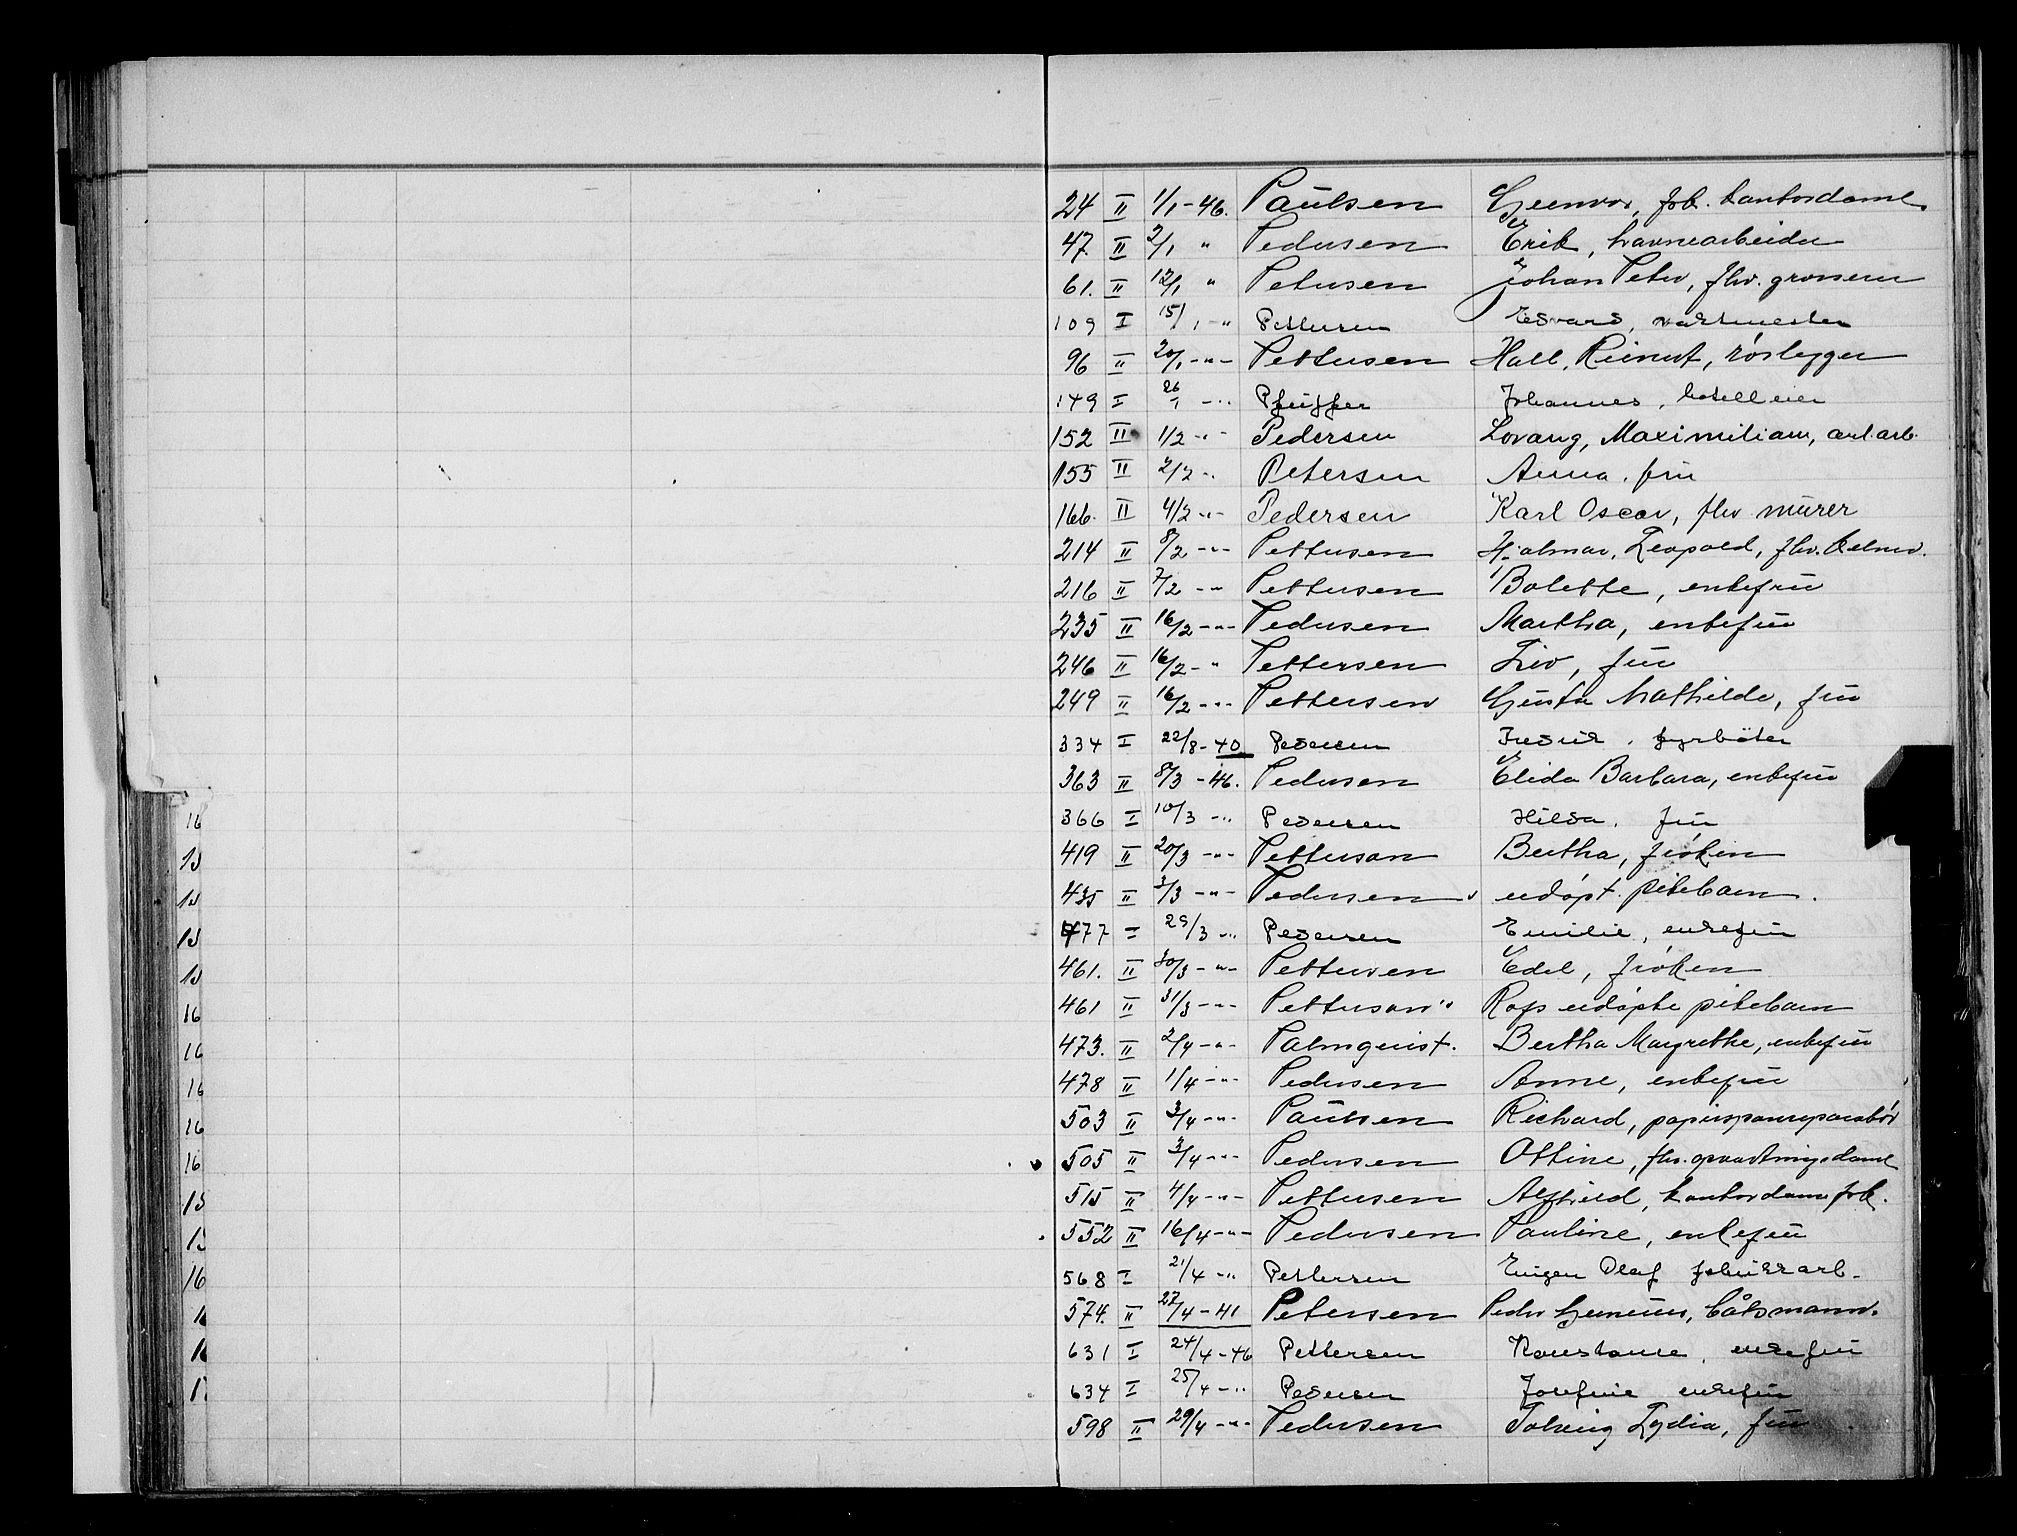 24 II 1/1-46. Paulsen Gunvor, frk. kontordame.
47. II 2/1 " Pedersen Erik, havnearbeider
61. II 12/1 " Petersen Johan Peter, fhv. grosserer
109 I 15/1 -" Pettersen Edvard, vaktmester
96 II 20/1 -"- Pettersen Hall. Reinert, rørlegger
149 I 26/1 -" Pfeiffer Johannes, hotelleier
152 II 1/2 -"- Pedersen Lorang, Maximilian, anl.arb.
155 II 2/2 -" Petersen Anna, fru
166. II 4/2 -"- Pedersen Karl Oscar, fhv murer
214 II 8/2 -"- Pettersen Hjalmar, Leopold, fhv. kelner.
216 II 7/2 -" Pettersen Bolette, enkefru
235 II 16/2 -"- Pedersen Martha, enkefru
246 II 16/2 - " Pettersen Liv, fru
249 II 16/2 -"- Pettersen Gusta Mathilde, fru
334 I 22/8-40 Pedersen Fredrik, fyrbøter
363 II 8/3 -46. Pedersen Elida Barbara, enkefru
366 I 10/3 -" Pedersen Hilda, fru
419 II 20/3 -"- Petterson Bertha, frøken
435 II 3/3 -"- Pedersens udøpt pikebarn.
477 I 29/3 -" Pedersen Emilie, enkefru
461. II 30/3 -"- Pettersen Edel, frøken
461 II 31/3 -"- Petterson's udøpte pikebarn
473. II 2/4 -"- Palmquist. Bertha Margrethe, enkefru
478 II 1/4 -"- Pedersen Anne, enkefru
503 II 3/4 -"- Paulsen Richard,
505 II 3/4 -"- Pedersen Ottine, fhv. opvartningsdame
515 II 4/4 -"- Pettersen Alfhild, kontordame frk.
552 II 16/4 -"- Pedersen Pauline, enkefru
568 I 21/4 -" Pettersen Eugen Olaf fabrikkarb.
574. II 27/4-41 Petersen Peder båtsmann.
631 I 24/4-46 Pettersen Konstanse, enkefru
634 I 25/4 -" Pedersen Josefine enkefru
598 II 29/4 -"- Pedersen Solveig Lydia, fru
16
13
13
13
13
16
16
16
16
16
13
13
16